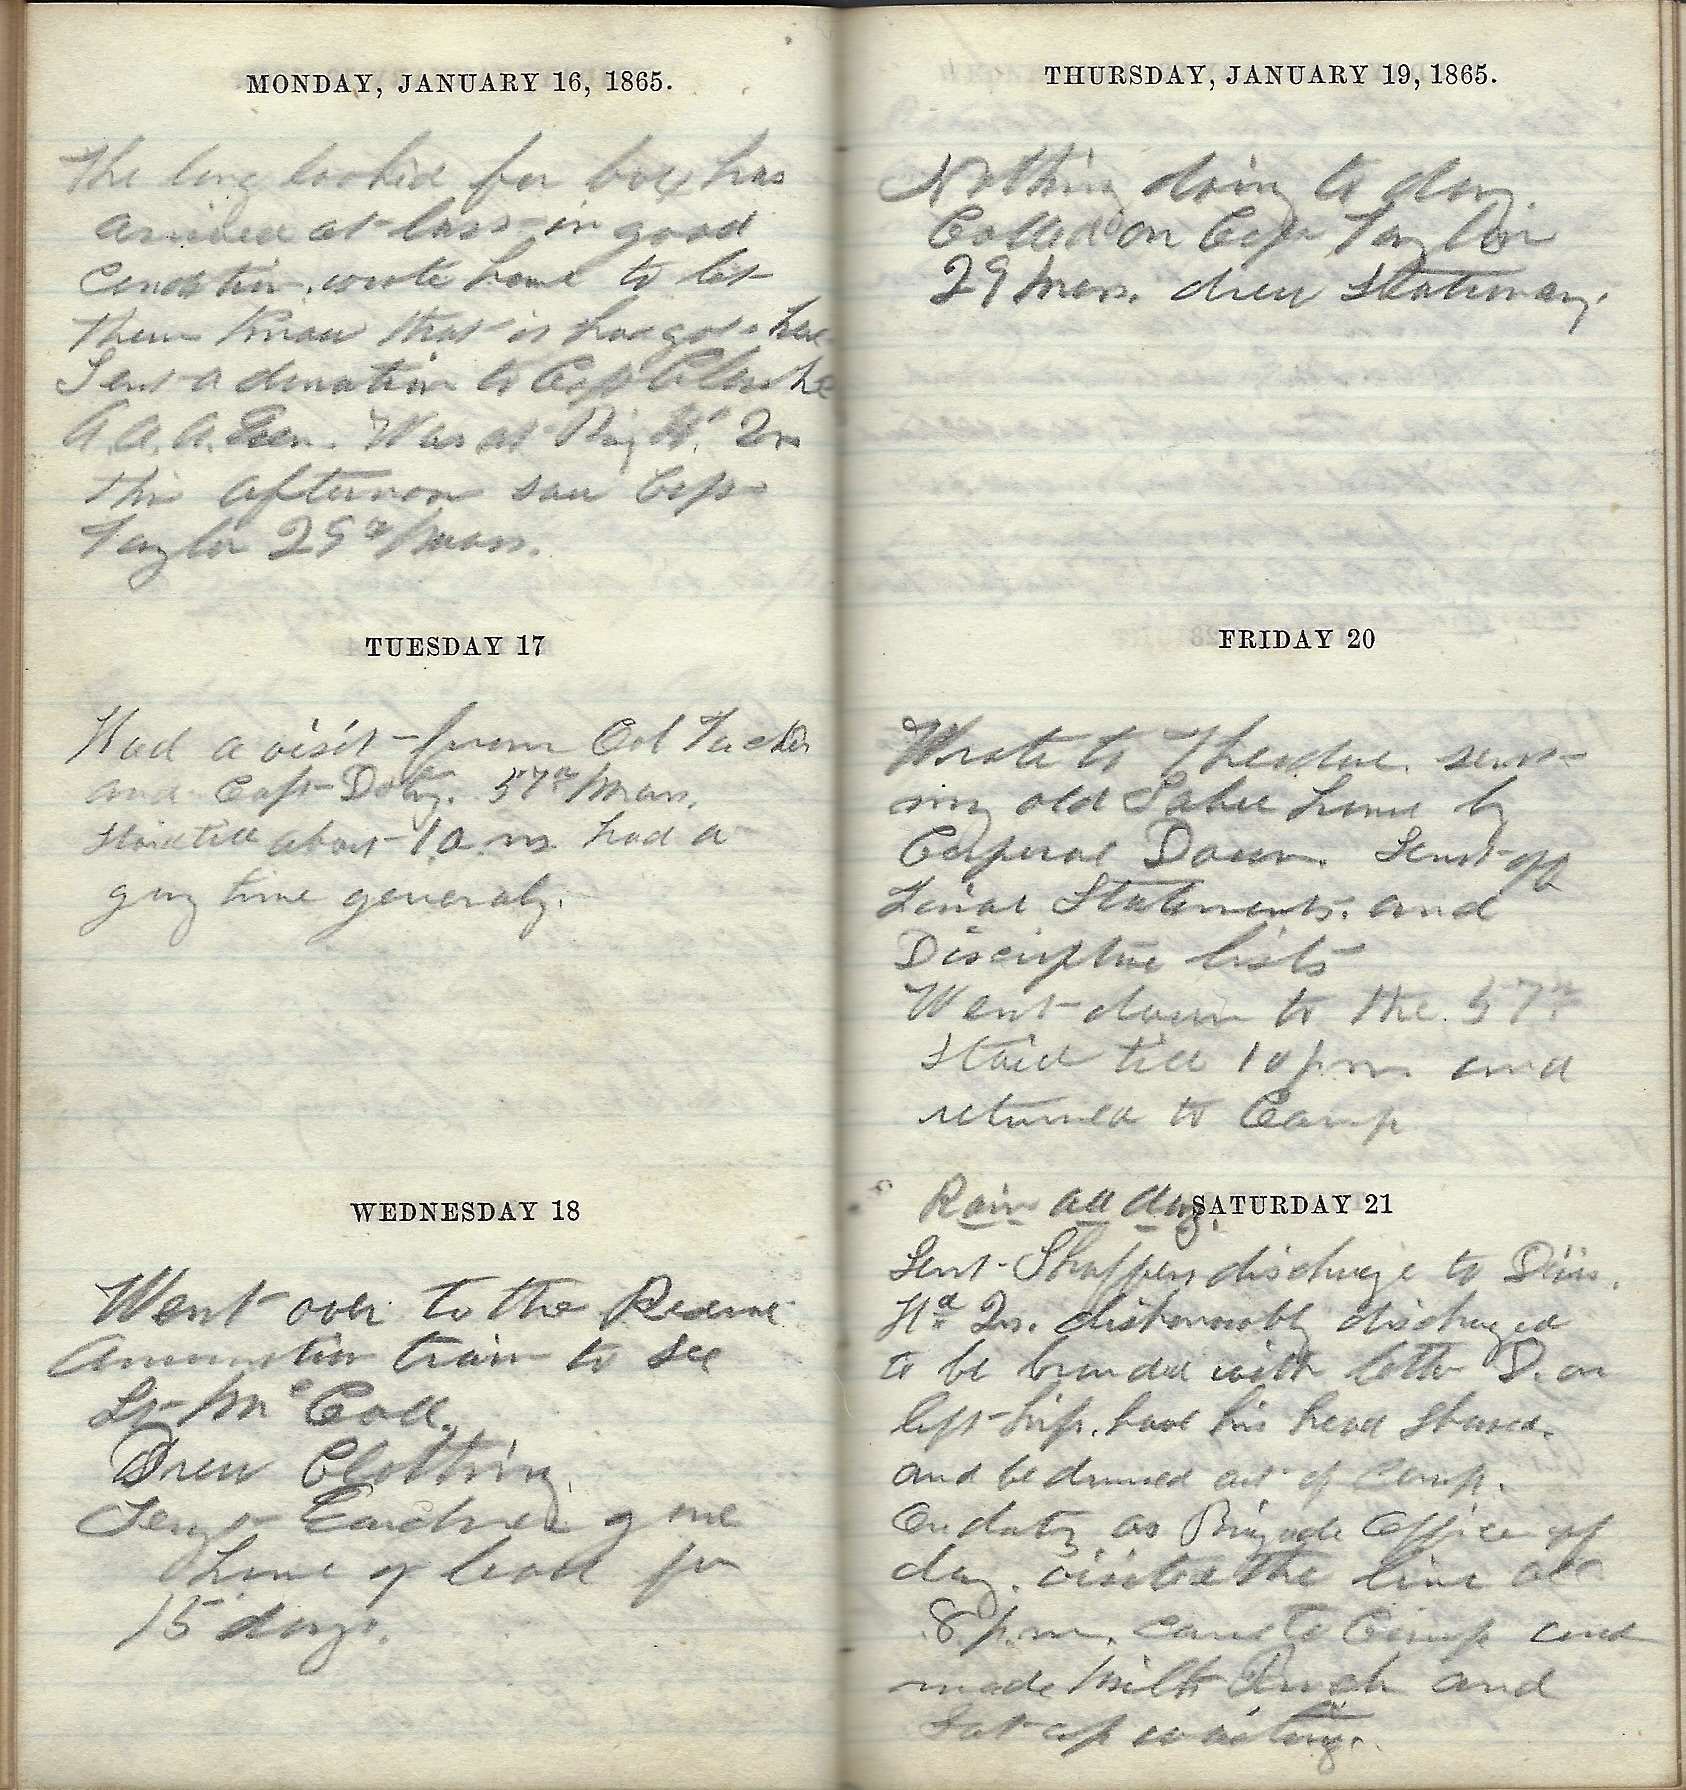 MONDAY, JANUARY 16, 1865.
The long looked for box has
arrived at last in good
Condition. wrote home to let
them know that it has got here
Sent a donation to Cap Clarke
A. A. A. Gen. Was at Brig Hd Qrs
this afternoon saw Cap
Taylor 29th Mass.
TUESDAY 17
Had a visit from Col Tucker
and Capt Doty. 57th Mass.
staid till about 1 a m had a
gay time generaly.
WEDNESDAY 18
Went over to the Reserve
Ammunition train to see
Lt Mc Call.
Drew Clothing
Sergt Gardner gone
home of leave for
15 days.
THURSDAY, JANUARY 19, 1865.
Nothing doing to day.
Called on Cap Taylor
29 Mass. drew Stationary.
FRIDAY 20
Wrote to Theodore. sent
my old Saber home by
Corporal Down. Sent off
Final Statements. and
Discriptive lists
Went down to the 57th
Staid till 10 p m and
returned to Camp
Rain all day.
SATURDAY 21
Sent discharge to Divis.
Hd Qrs. dishonorably discharged
to be branded with letter D. on
left hip. have his head shaved.
and be drumed out of Camp.
On duty as Brigade Officer of
day. visited the line at
8 p.m. came to Camp and
made Milk Punch and
Sat up waiting.